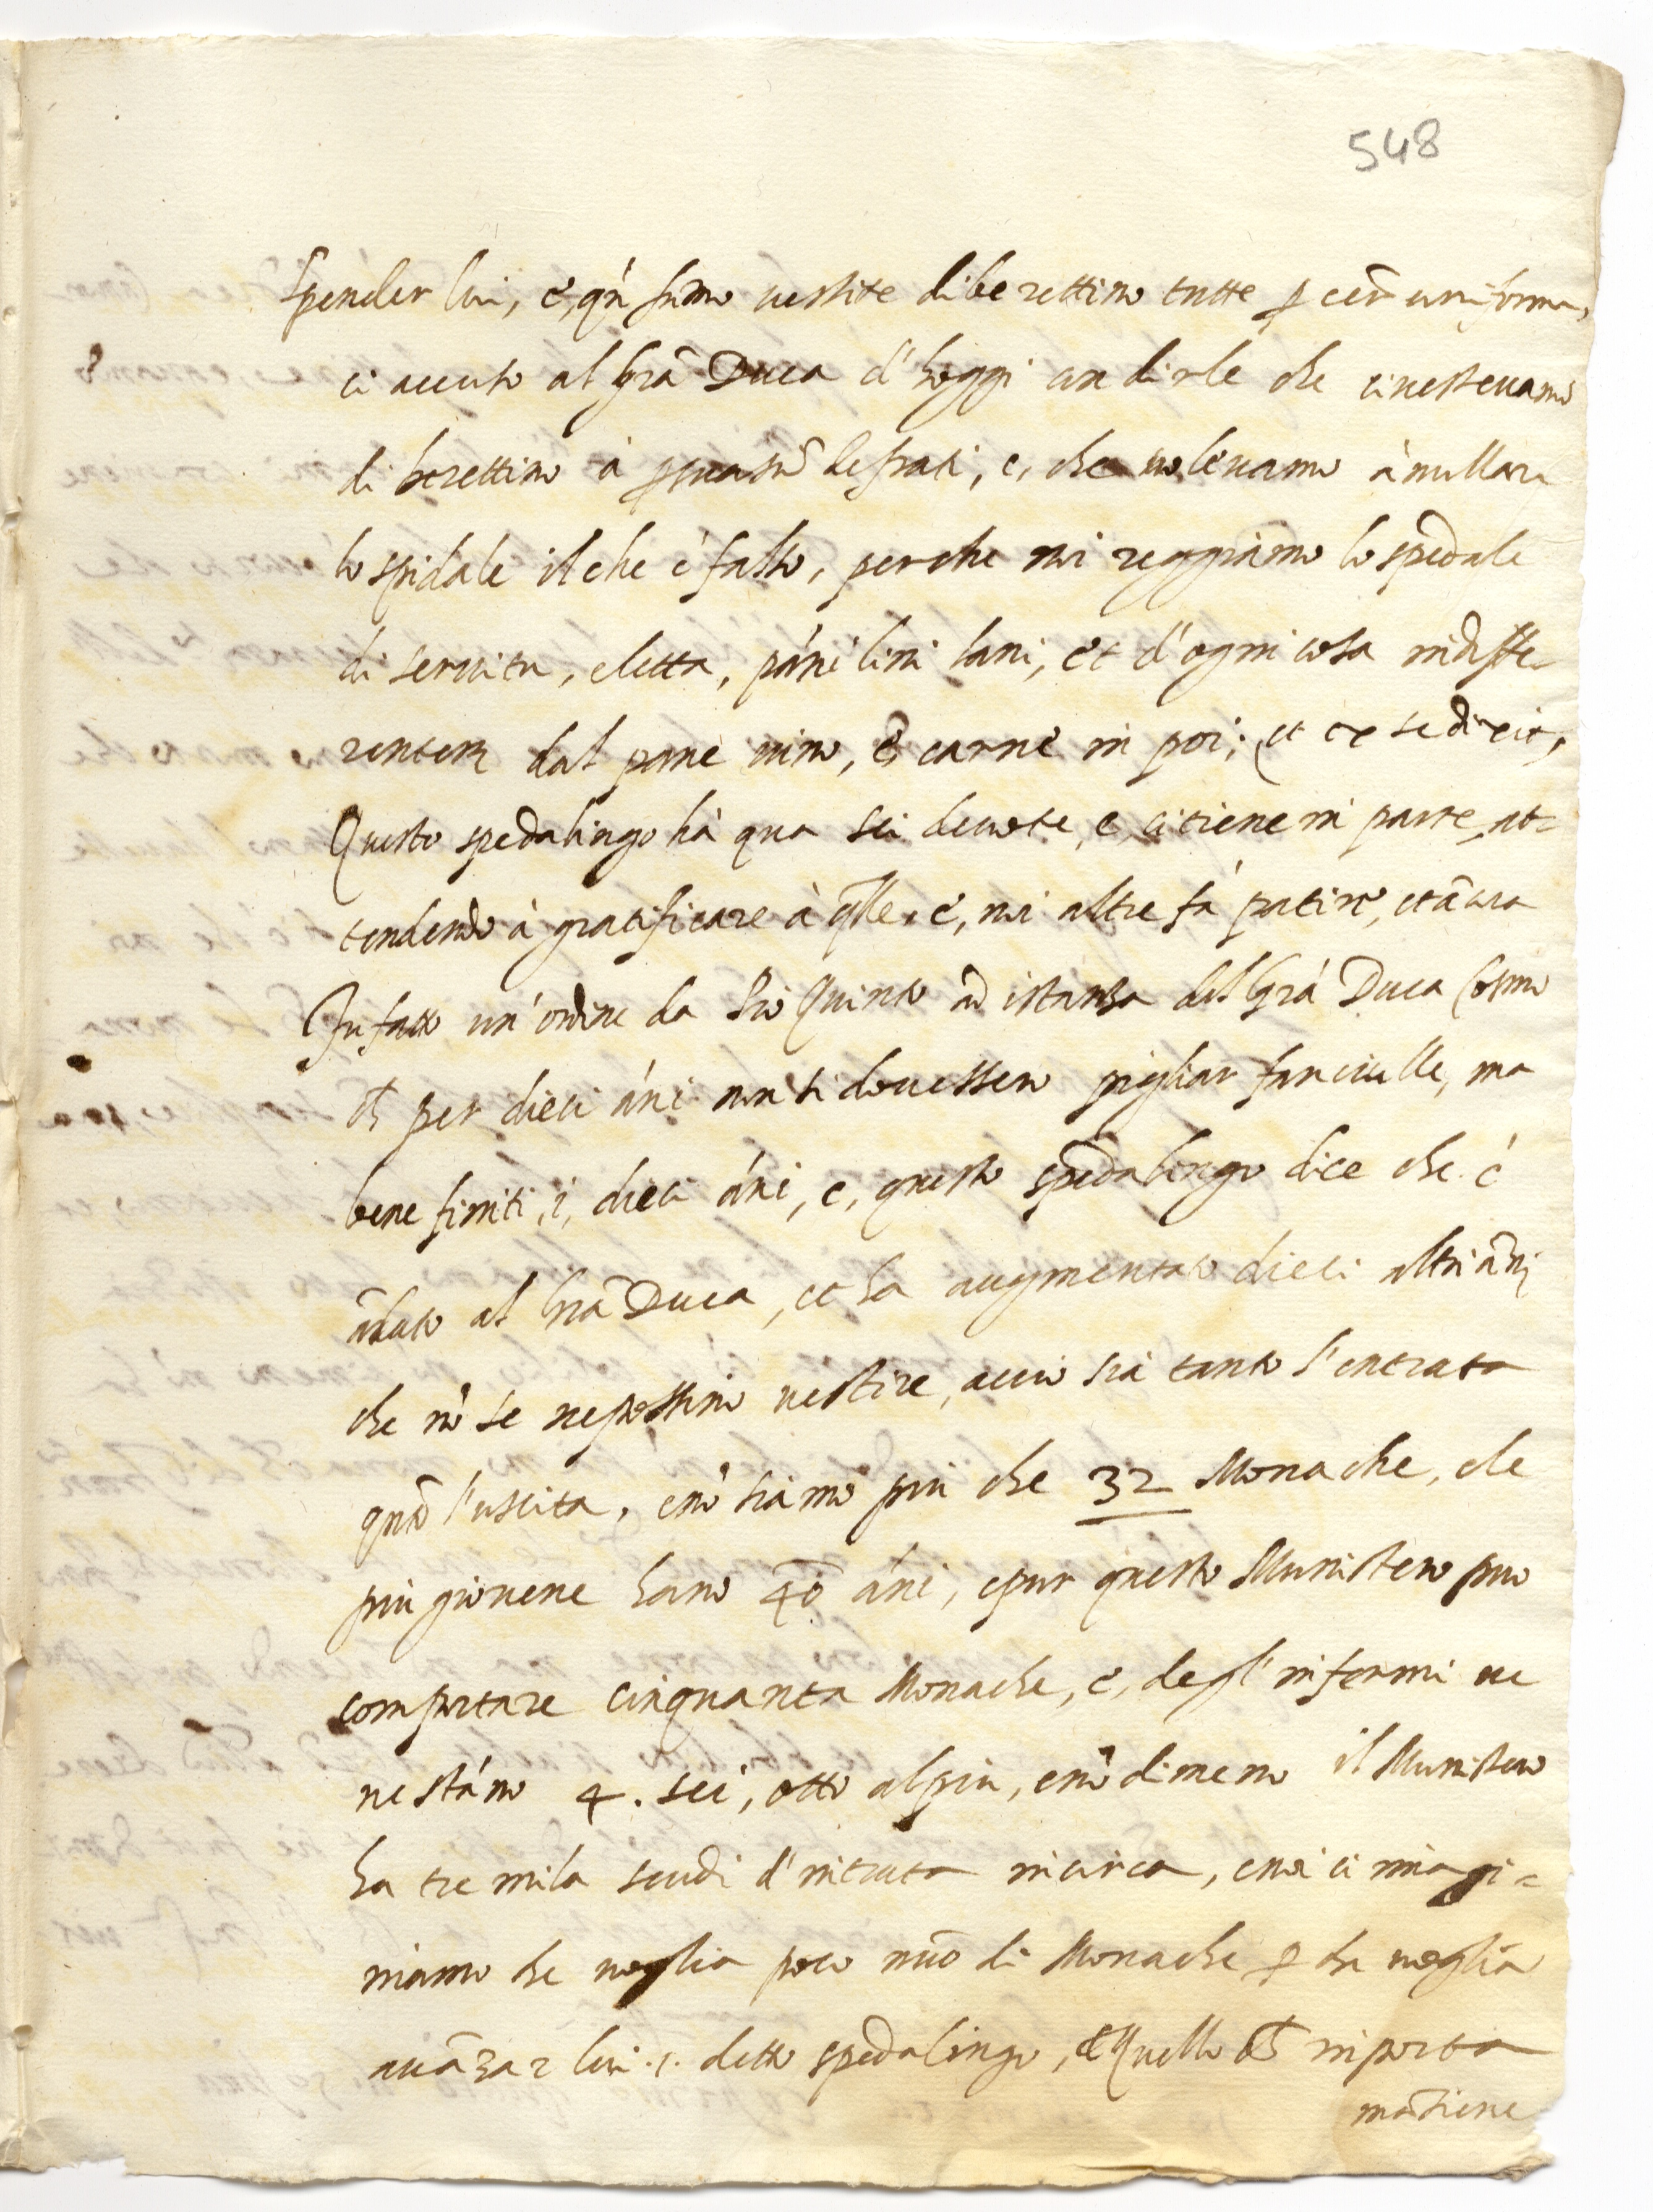 548
spender lui, e, qñ fumo uestite di berettino tutte ꝑ eẽr uniforme,
ci accusò al Grã Duca d'hoggi con dirle che ci uesteuamo
di berettino à ꝑsuasiõ de frati, e, che uoleuamo ànullare
lo spidale il che è falso, perche noi reggiàmo lo spedale
di seruitu, eletta, páni lini lani, et d'ogni cosa indiffe-
rentem̃ dal pane uino, e, carne in poi; et ex se dixit,
Questo spedalingo hà qua sei deuote, e, ci tiene in parte, at=
tendendo à gratificare à q̃lle, e, noi altre fà patire, et ãcora
Fu fatto un'ordine da Pio Quinto ad istanza del Grã Duca Cosimo
ch̃ per dieci áni non si douessero pigliar fanciulle, ma
bene finiti, i, dieci áni, e, questo spedalingo dice che è
ãdato al Grã Duca, et ha augmentato dieci altri ãni
che nõ se ne possino uestire, accio sia tanto l'entrata
quãto l'uscita, e nõ siamo piu che 32 Monache, e le
piu giouene hano 40 áni, e pur questo Munistero puo
comportare cinquanta Monache, e, degl'infermi ue
ne stáno 4. sei, otto al piu, e nõ dimeno il Munistero
ha tre mila scudi d'intrata in circa, e noi ci imagi=
niamo che uoglia poco nũo di Monache ꝑ che uoglia
auãzar lui .s. detto spedalingo, e Quello ch̃ importa
mãtiene